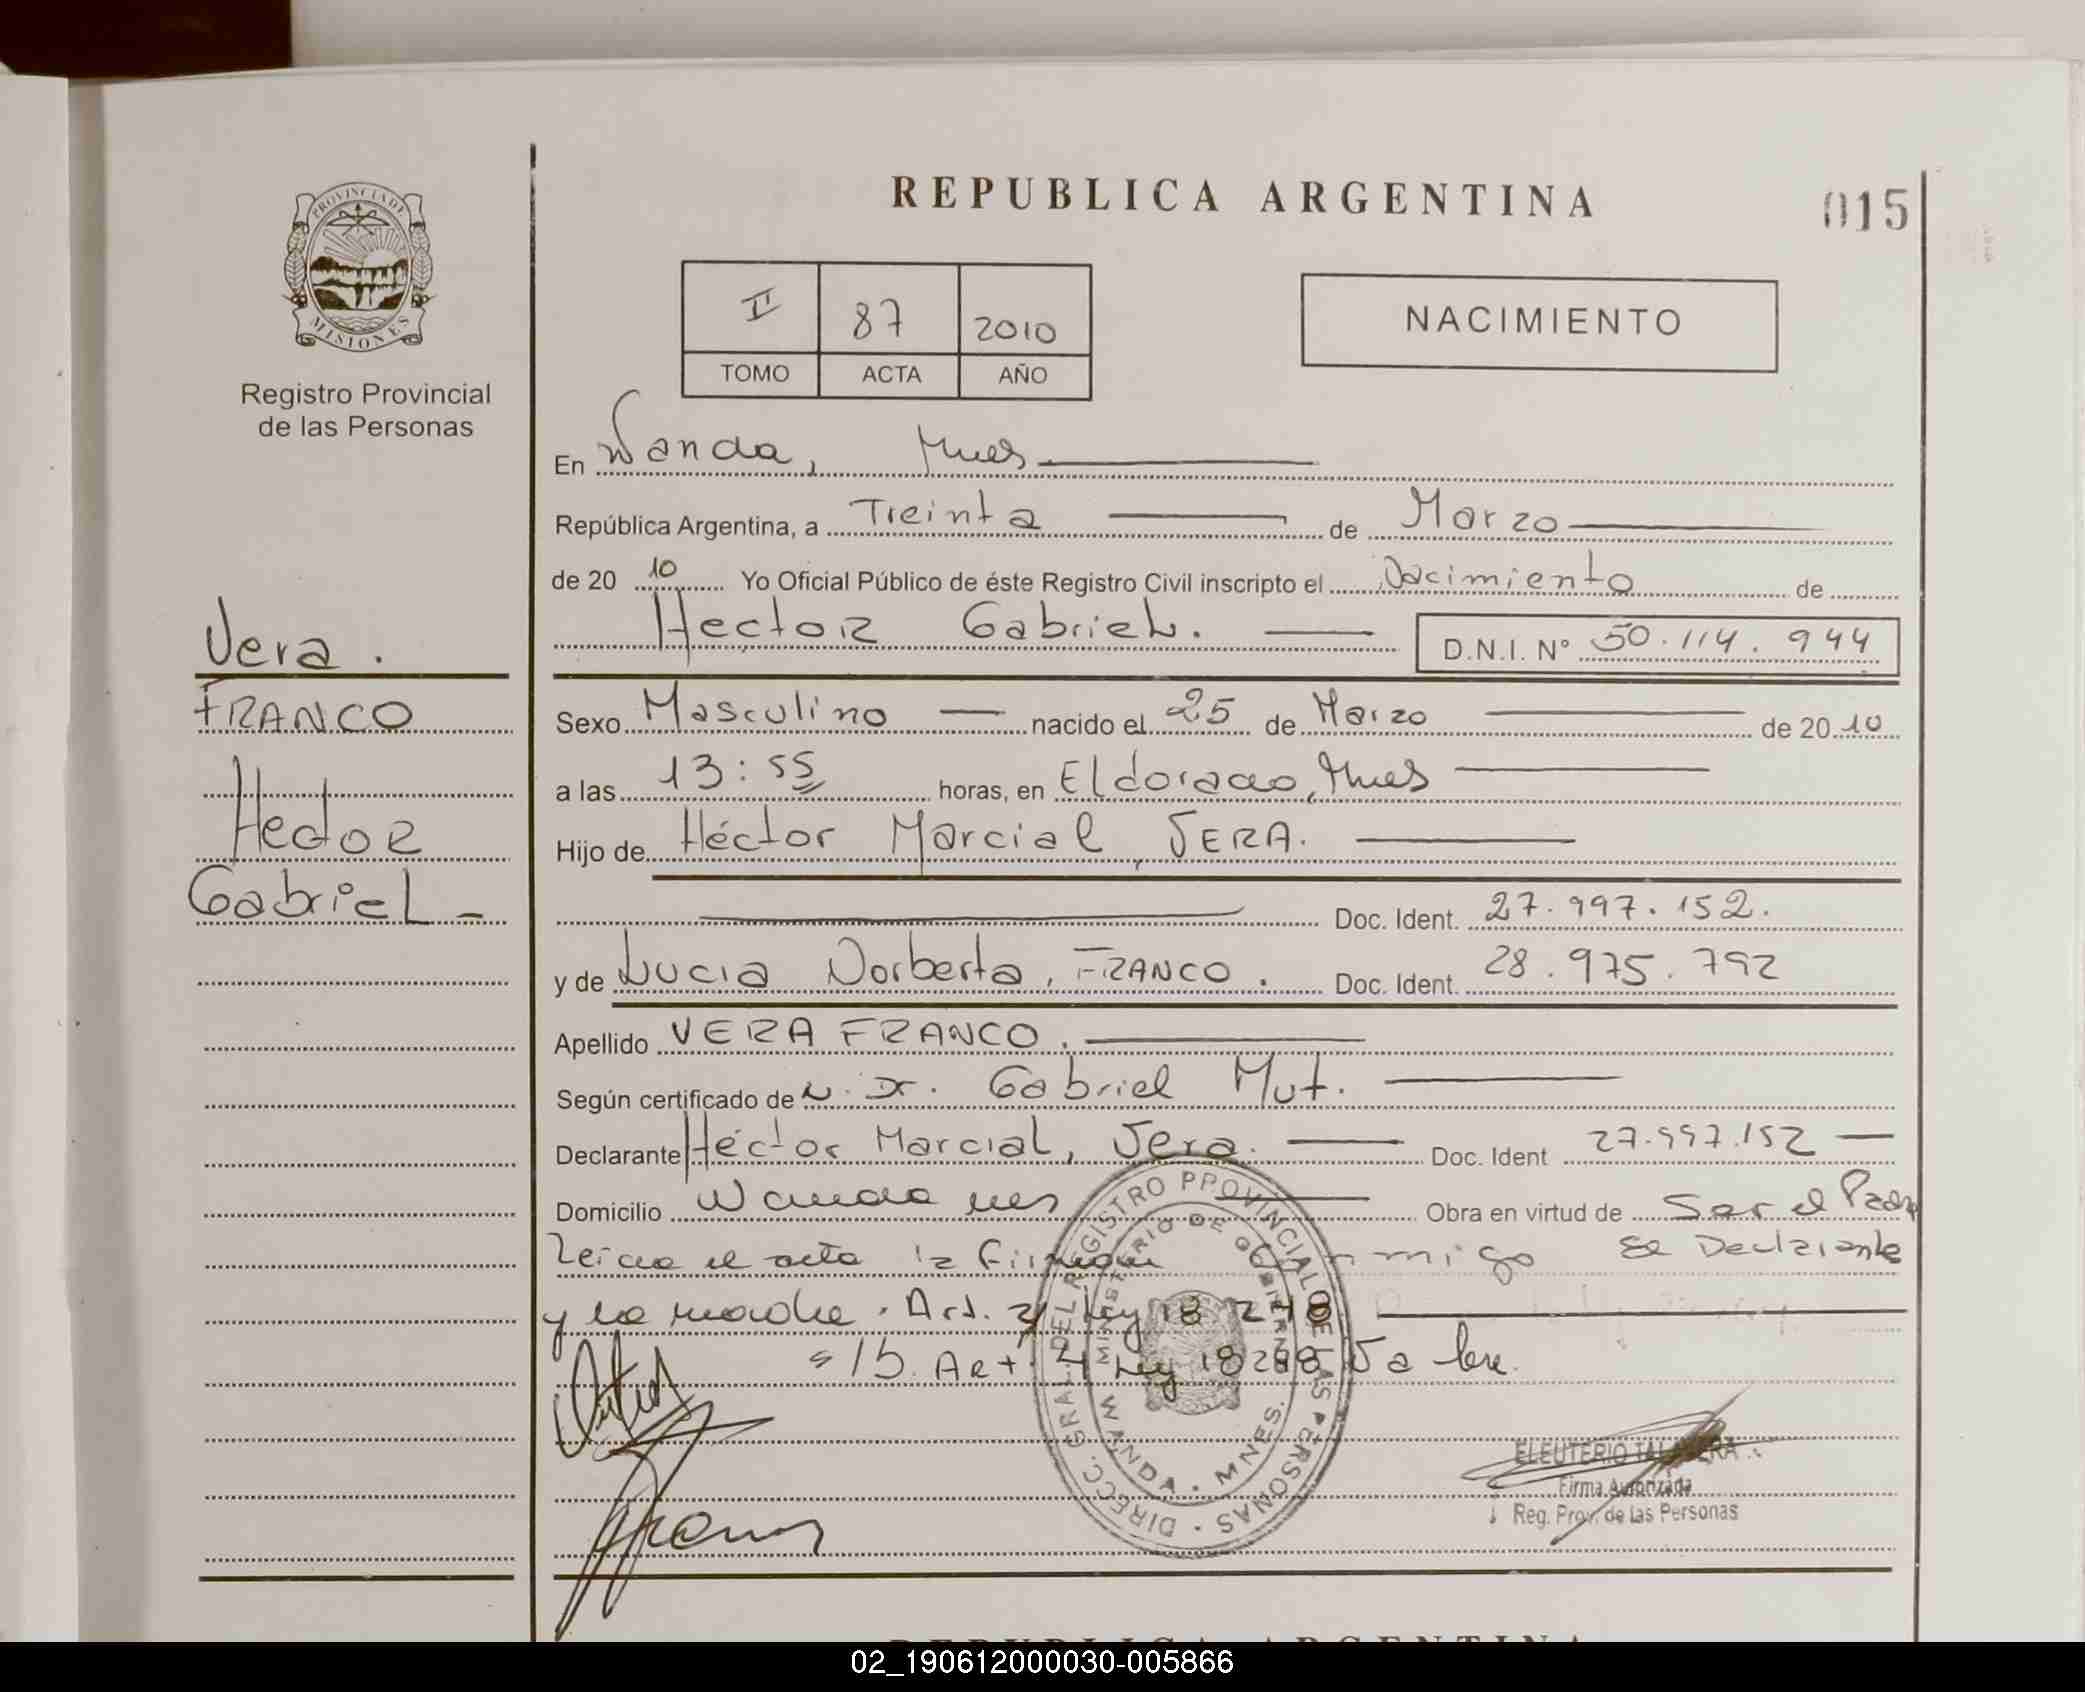 PROVINCIA DE
MISIONES
Registro Provincial
de las Personas
REPUBLICA ARGENTINA
015
II 87 2010
TOMO ACTA AÑO
NACIMIENTO
En Wanda, Mnes
República Argentina, a Treinta de Marzo
de 20 10 Yo Oficial Público de éste Registro Civil inscripto el Nacimiento de
Hector Gabriel. D.N.I. Nº 50.114.944
Vera.
FRANCO
Hector
Gabriel
Sexo Masculino nacido el 25 de Marzo de 20 10
a las 13:55 horas, en Eldorado, Mnes
Hijo de Héctor Marcial, VERA.
Doc. Ident. 27.997.152.
y de Lucia Norberta, FRANCO. Doc. Ident. 28.975.792
Apellido VERA FRANCO.
Según certificado de N. Dr. Gabriel Mut.
Declarante Héctor Marcial, Vera. Doc. Ident 27.997.152
Domicilio Wanda Mnes Obra en virtud de Ser el Padre
Leida el acta la firman conmigo el Declarante
y la madre. Art. Ley 18 248
15. Art. 4 Ley 18248 Vale.
DIRECC. GRAL. DEL REGISTRO PROVINCIAL DE LAS PERSONAS
MINISTERIO DE GOBIERNO
WANDA - MNES.
ELEUTERIO TALAVERA
Firma Autorizada
Reg. Prov. de las Personas
REPUBLICA ARGENTINA
02_190612000030-005866